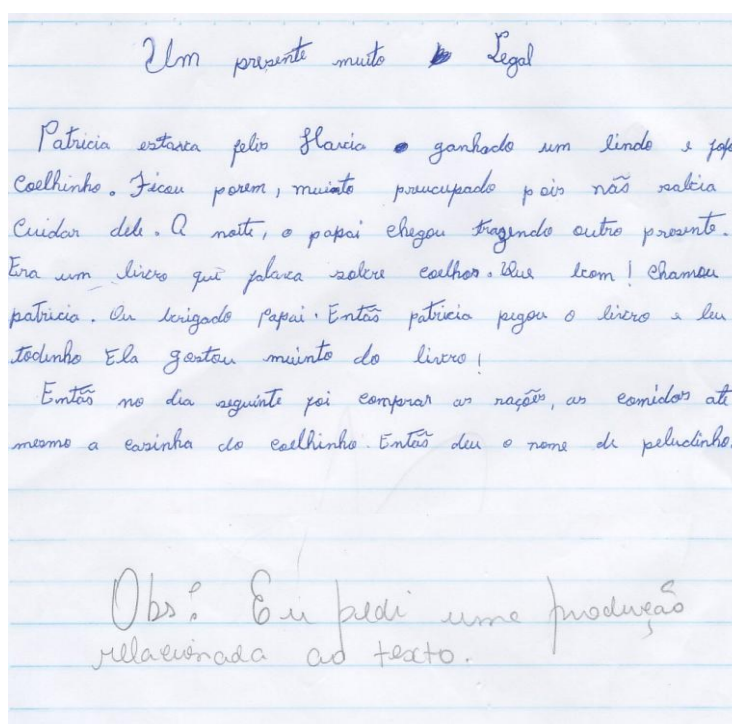 Um presente muito Legal
Patricia estava felis Havia ganhado um lindo e fofo
Coelhinho. Ficou porem, muinto preucupado pois não sabia
Cuidar dele. A noite, o papai chegou tragendo outro presente.
Era um livro que falava sobre coelhos. Que bom! Chamou
patricia. Ou brigado Papai. Então patricia pegou o livro e leu
todinho Ela gostou muinto do livro!
Então no dia seguinte foi comprar as rações, as comidas até
mesmo a casinha do coelhinho. Então deu o nome de peludinho.
Obs: Eu pedi uma produção
relacionada ao texto.